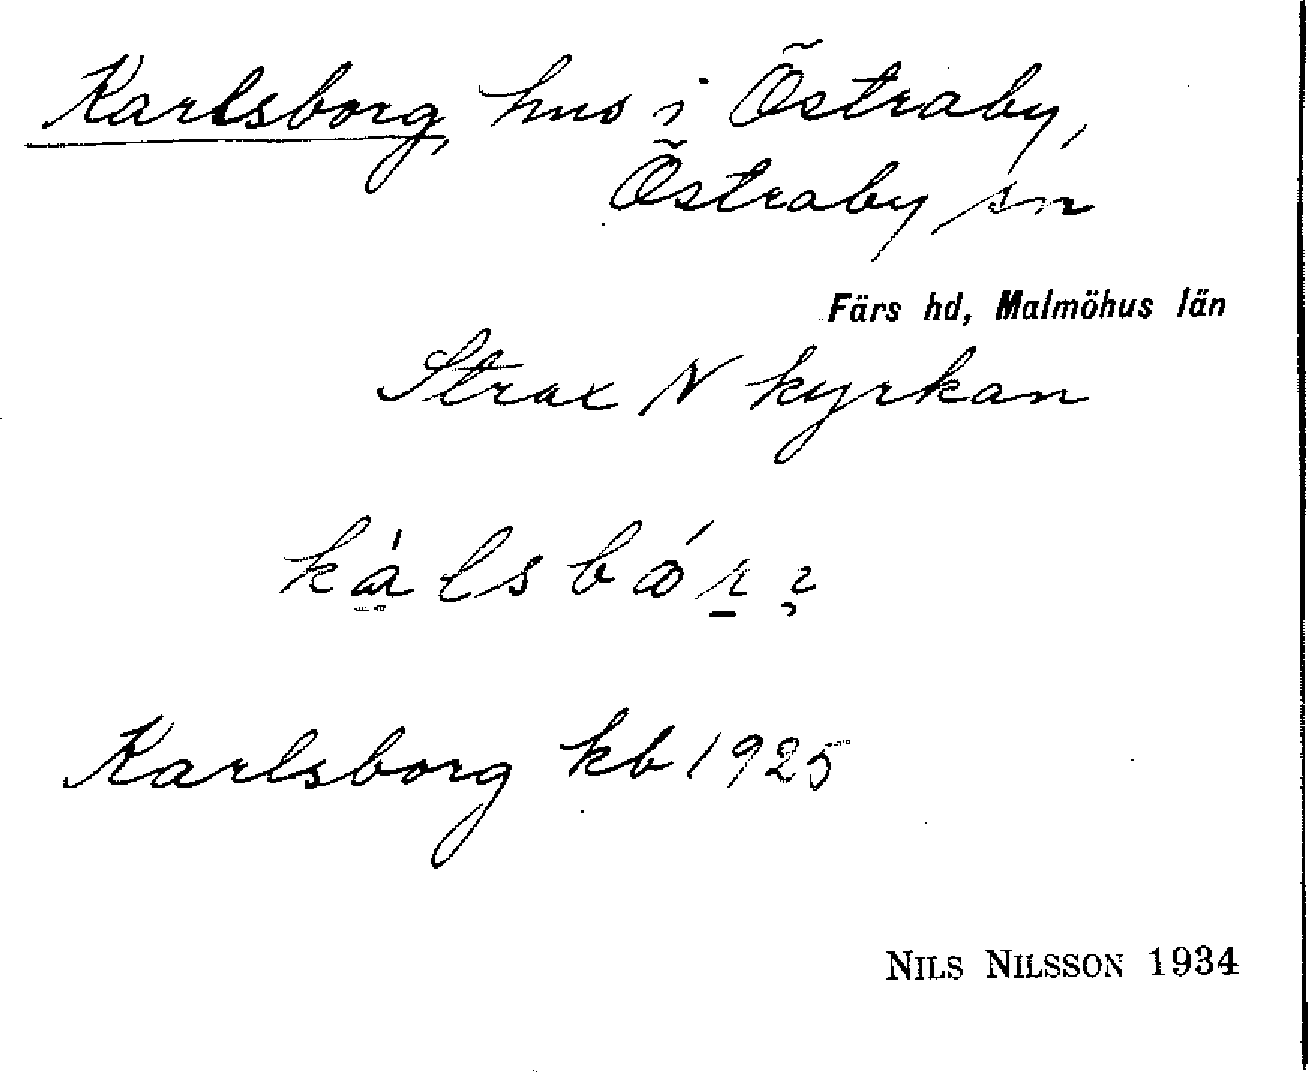 Karlsborg, hus i Östraby,
Östraby sn
Färs hd, Malmöhus län
Strax N kyrkan
Karlsborg kb 1925
NILS NILSSON 1934